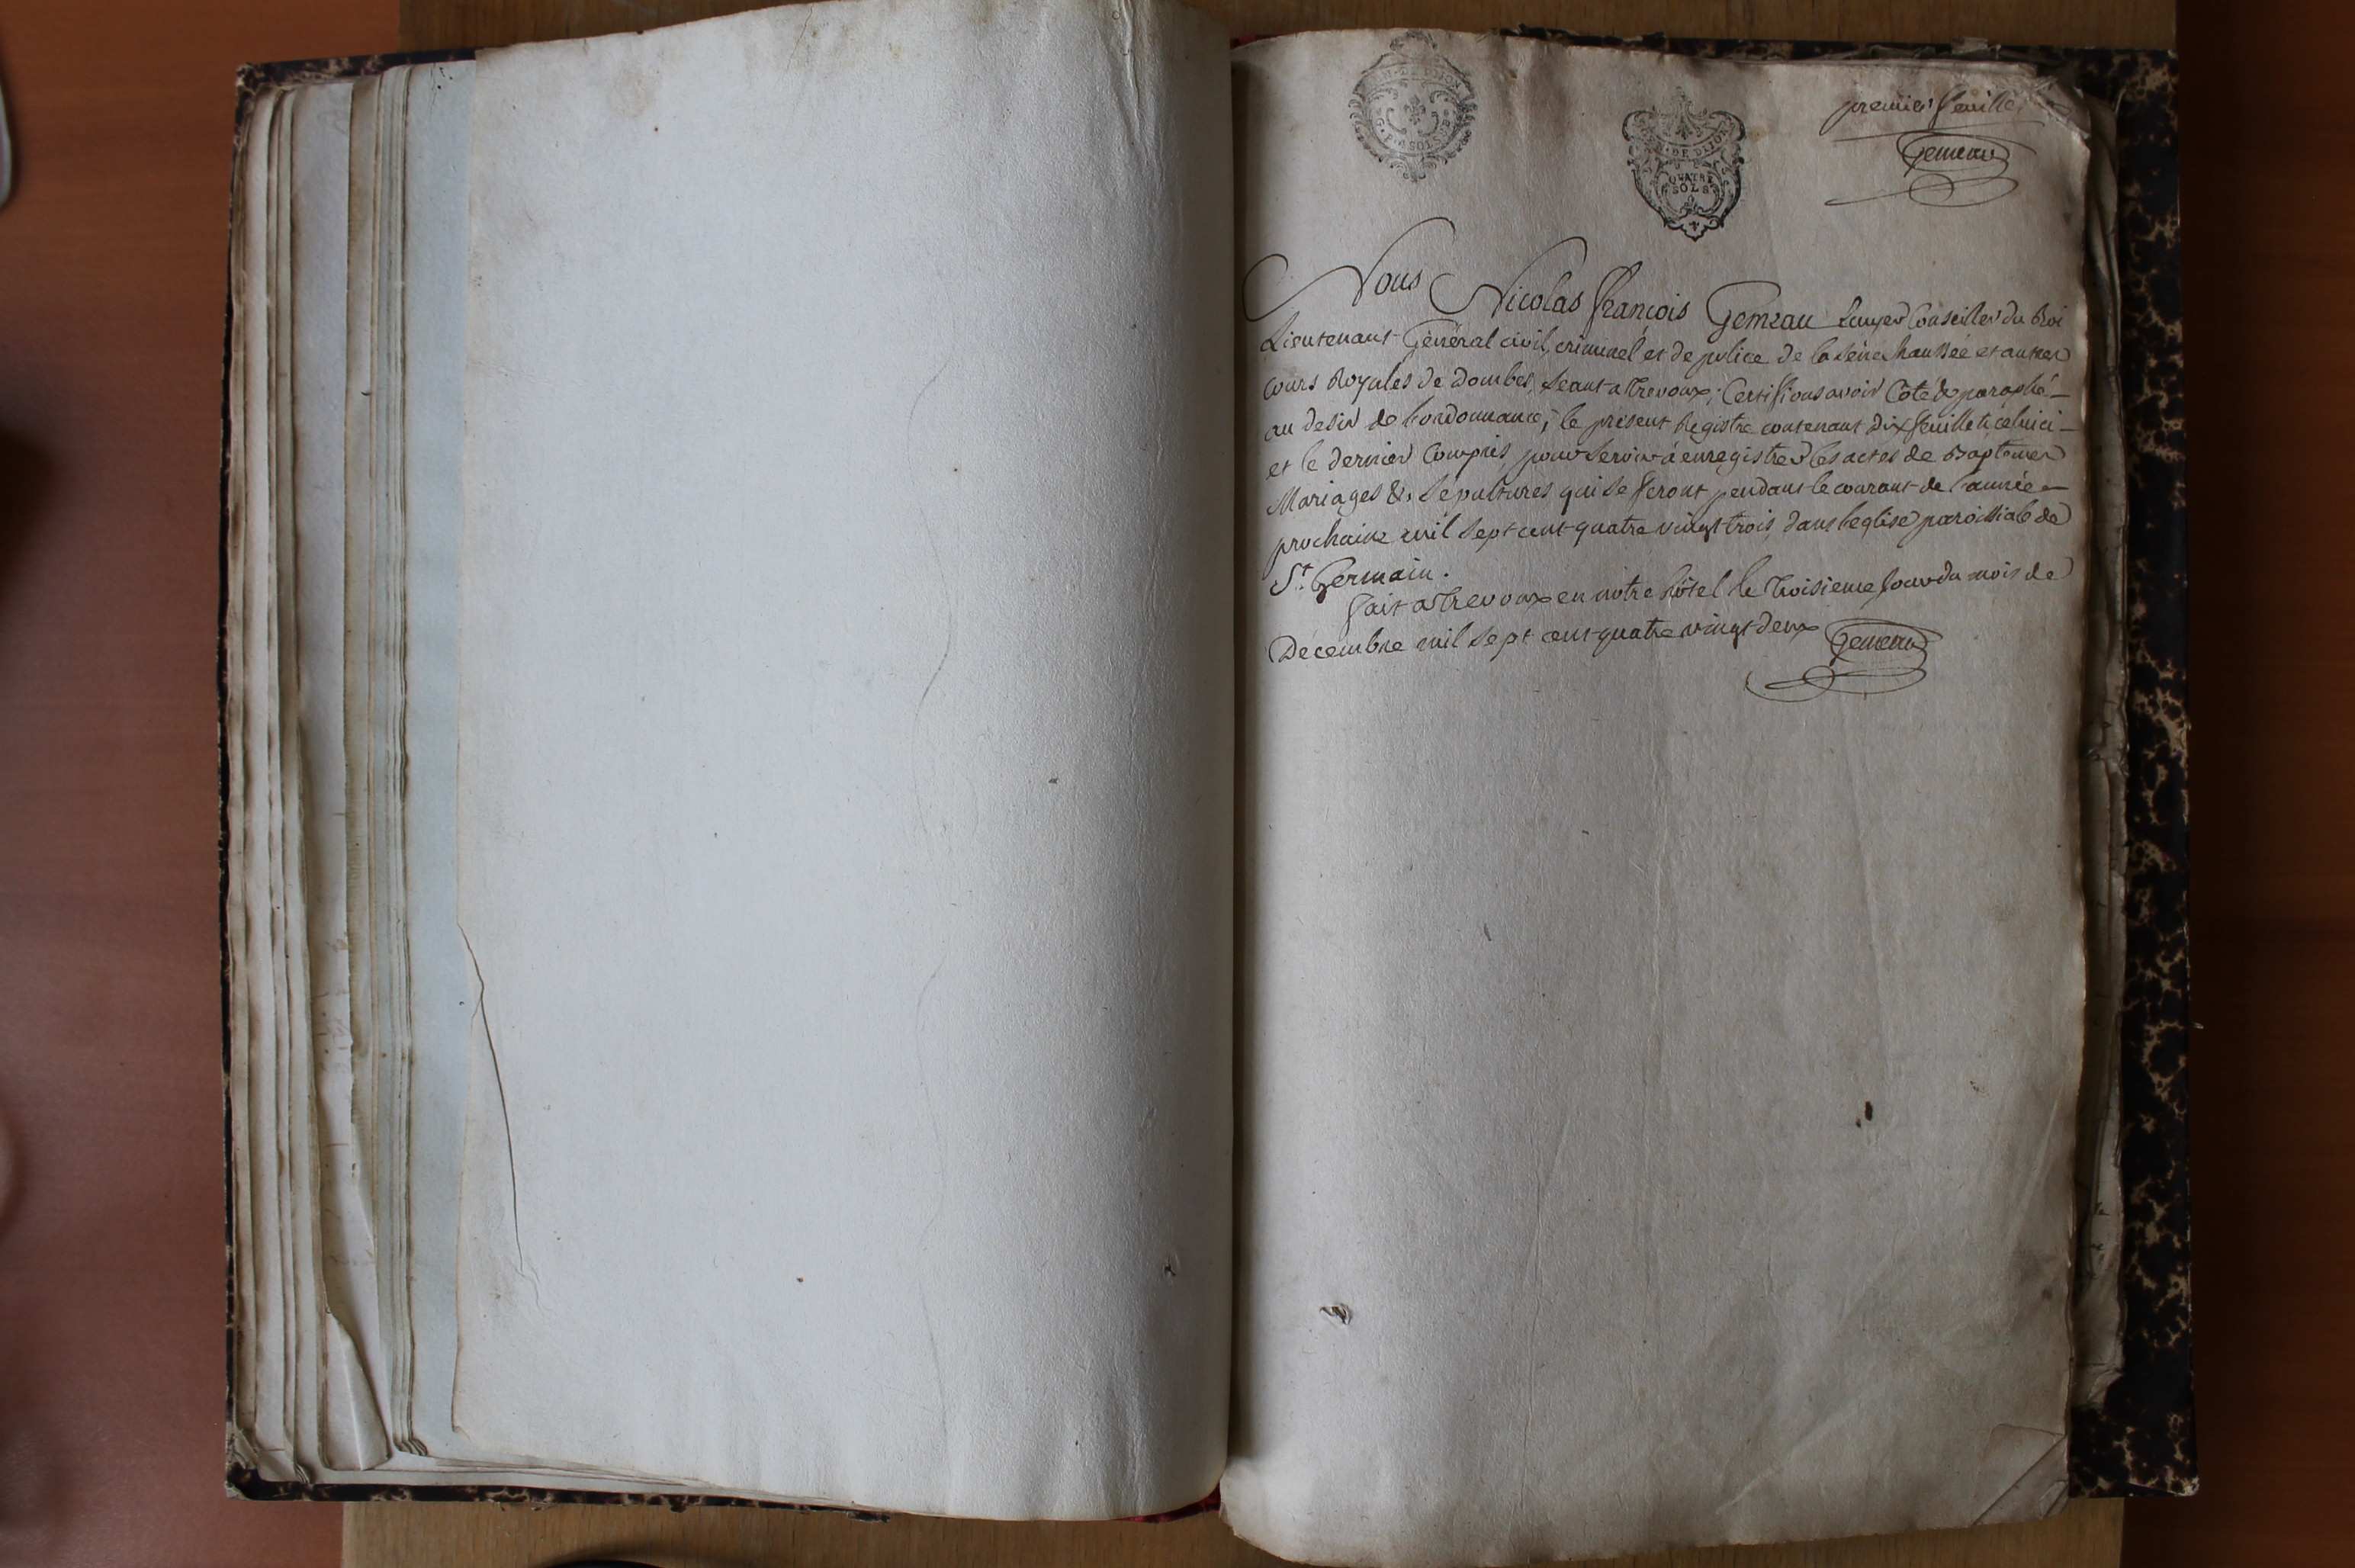 GEN. DE DIJON
G. P. 4 SOLS
GEN. DE DIJON
QUATRE
SOLS
premier feuillet
Gemeau
Nous Nicolas françois Gemeau Ecuyer Conseiller du Roi
Lieutenant Général civil, criminel et de police de la sénéchaussée et autres
cours Royales de dombes, séant a Trevoux; Certifions avoir Coté & paraphé
au desir de l'ordonnance, le présent Régistre contenant Dix feuillets celuici
et le dernier Compris, pour servir à enregistrer les actes de Baptemes
Mariages & Sépultures qui se feront pendant le courant de l'année
prochaine mil sept cent quatre vingt trois, dans l'eglise paroissiale de
St. Germain.
fait a Trevoux en notre hôtel le troisieme jour du mois de
Décembre mil sept cent quatre vingt deux Gemeau